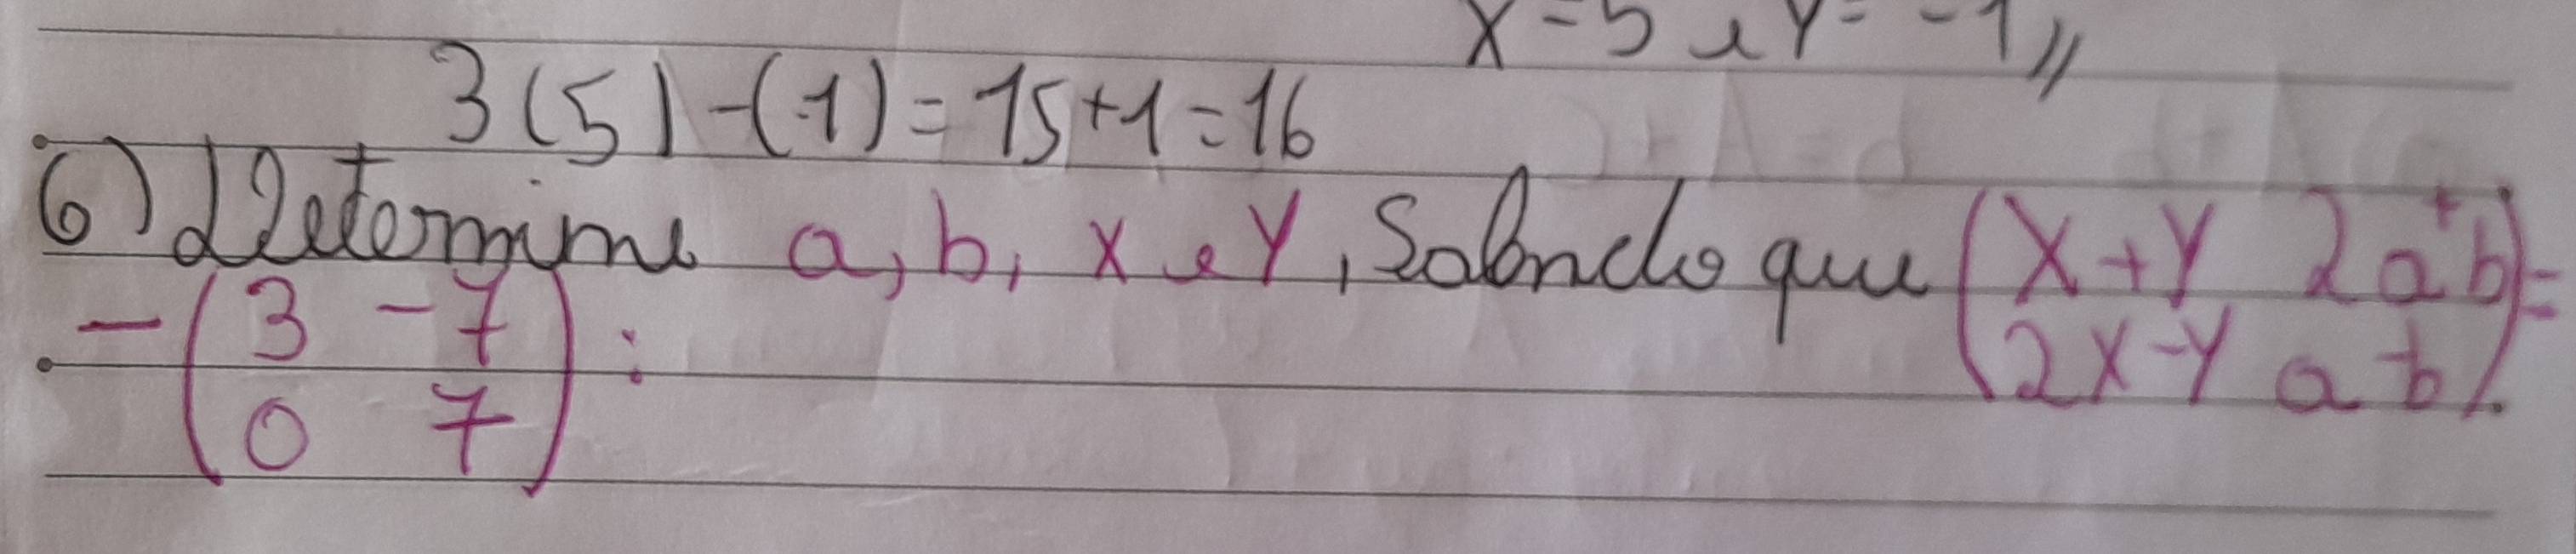 x = 5 e y = -1 //
3(5) - (-1) = 15 + 1 = 16
6) Determine a, b, x e y, Sabendo que (x + y 2a + b) =
(2x - y a - b).
- (3 -7) :
(0 7)